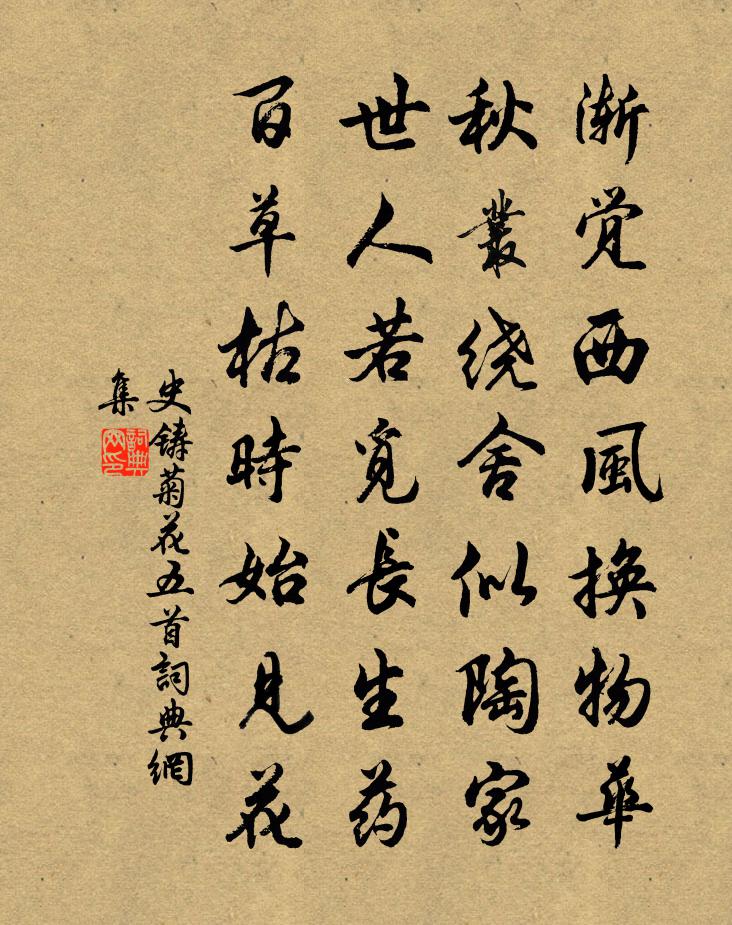 渐觉西風换物華
秋叢绕舍似陶家
世人若觅長生药
百草枯時始見花
史鋳菊花五首詞典網
集
詞典
网印